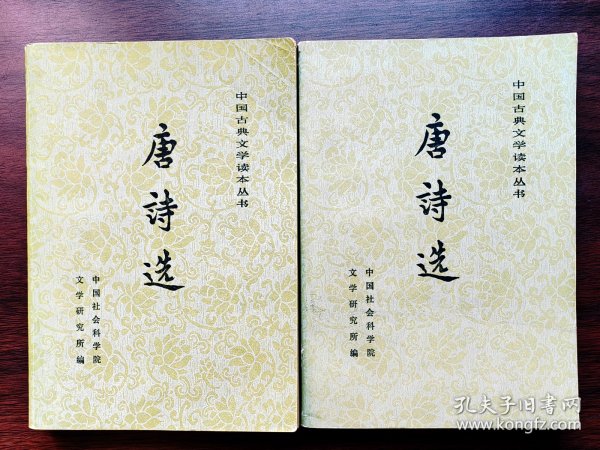 中国古典文学读本丛书
唐詩选
中国社会科学院
文学研究所编
中国古典文学读本丛书
唐詩选
中国社会科学院
文学研究所编
孔夫子旧书网
www.kongfz.com